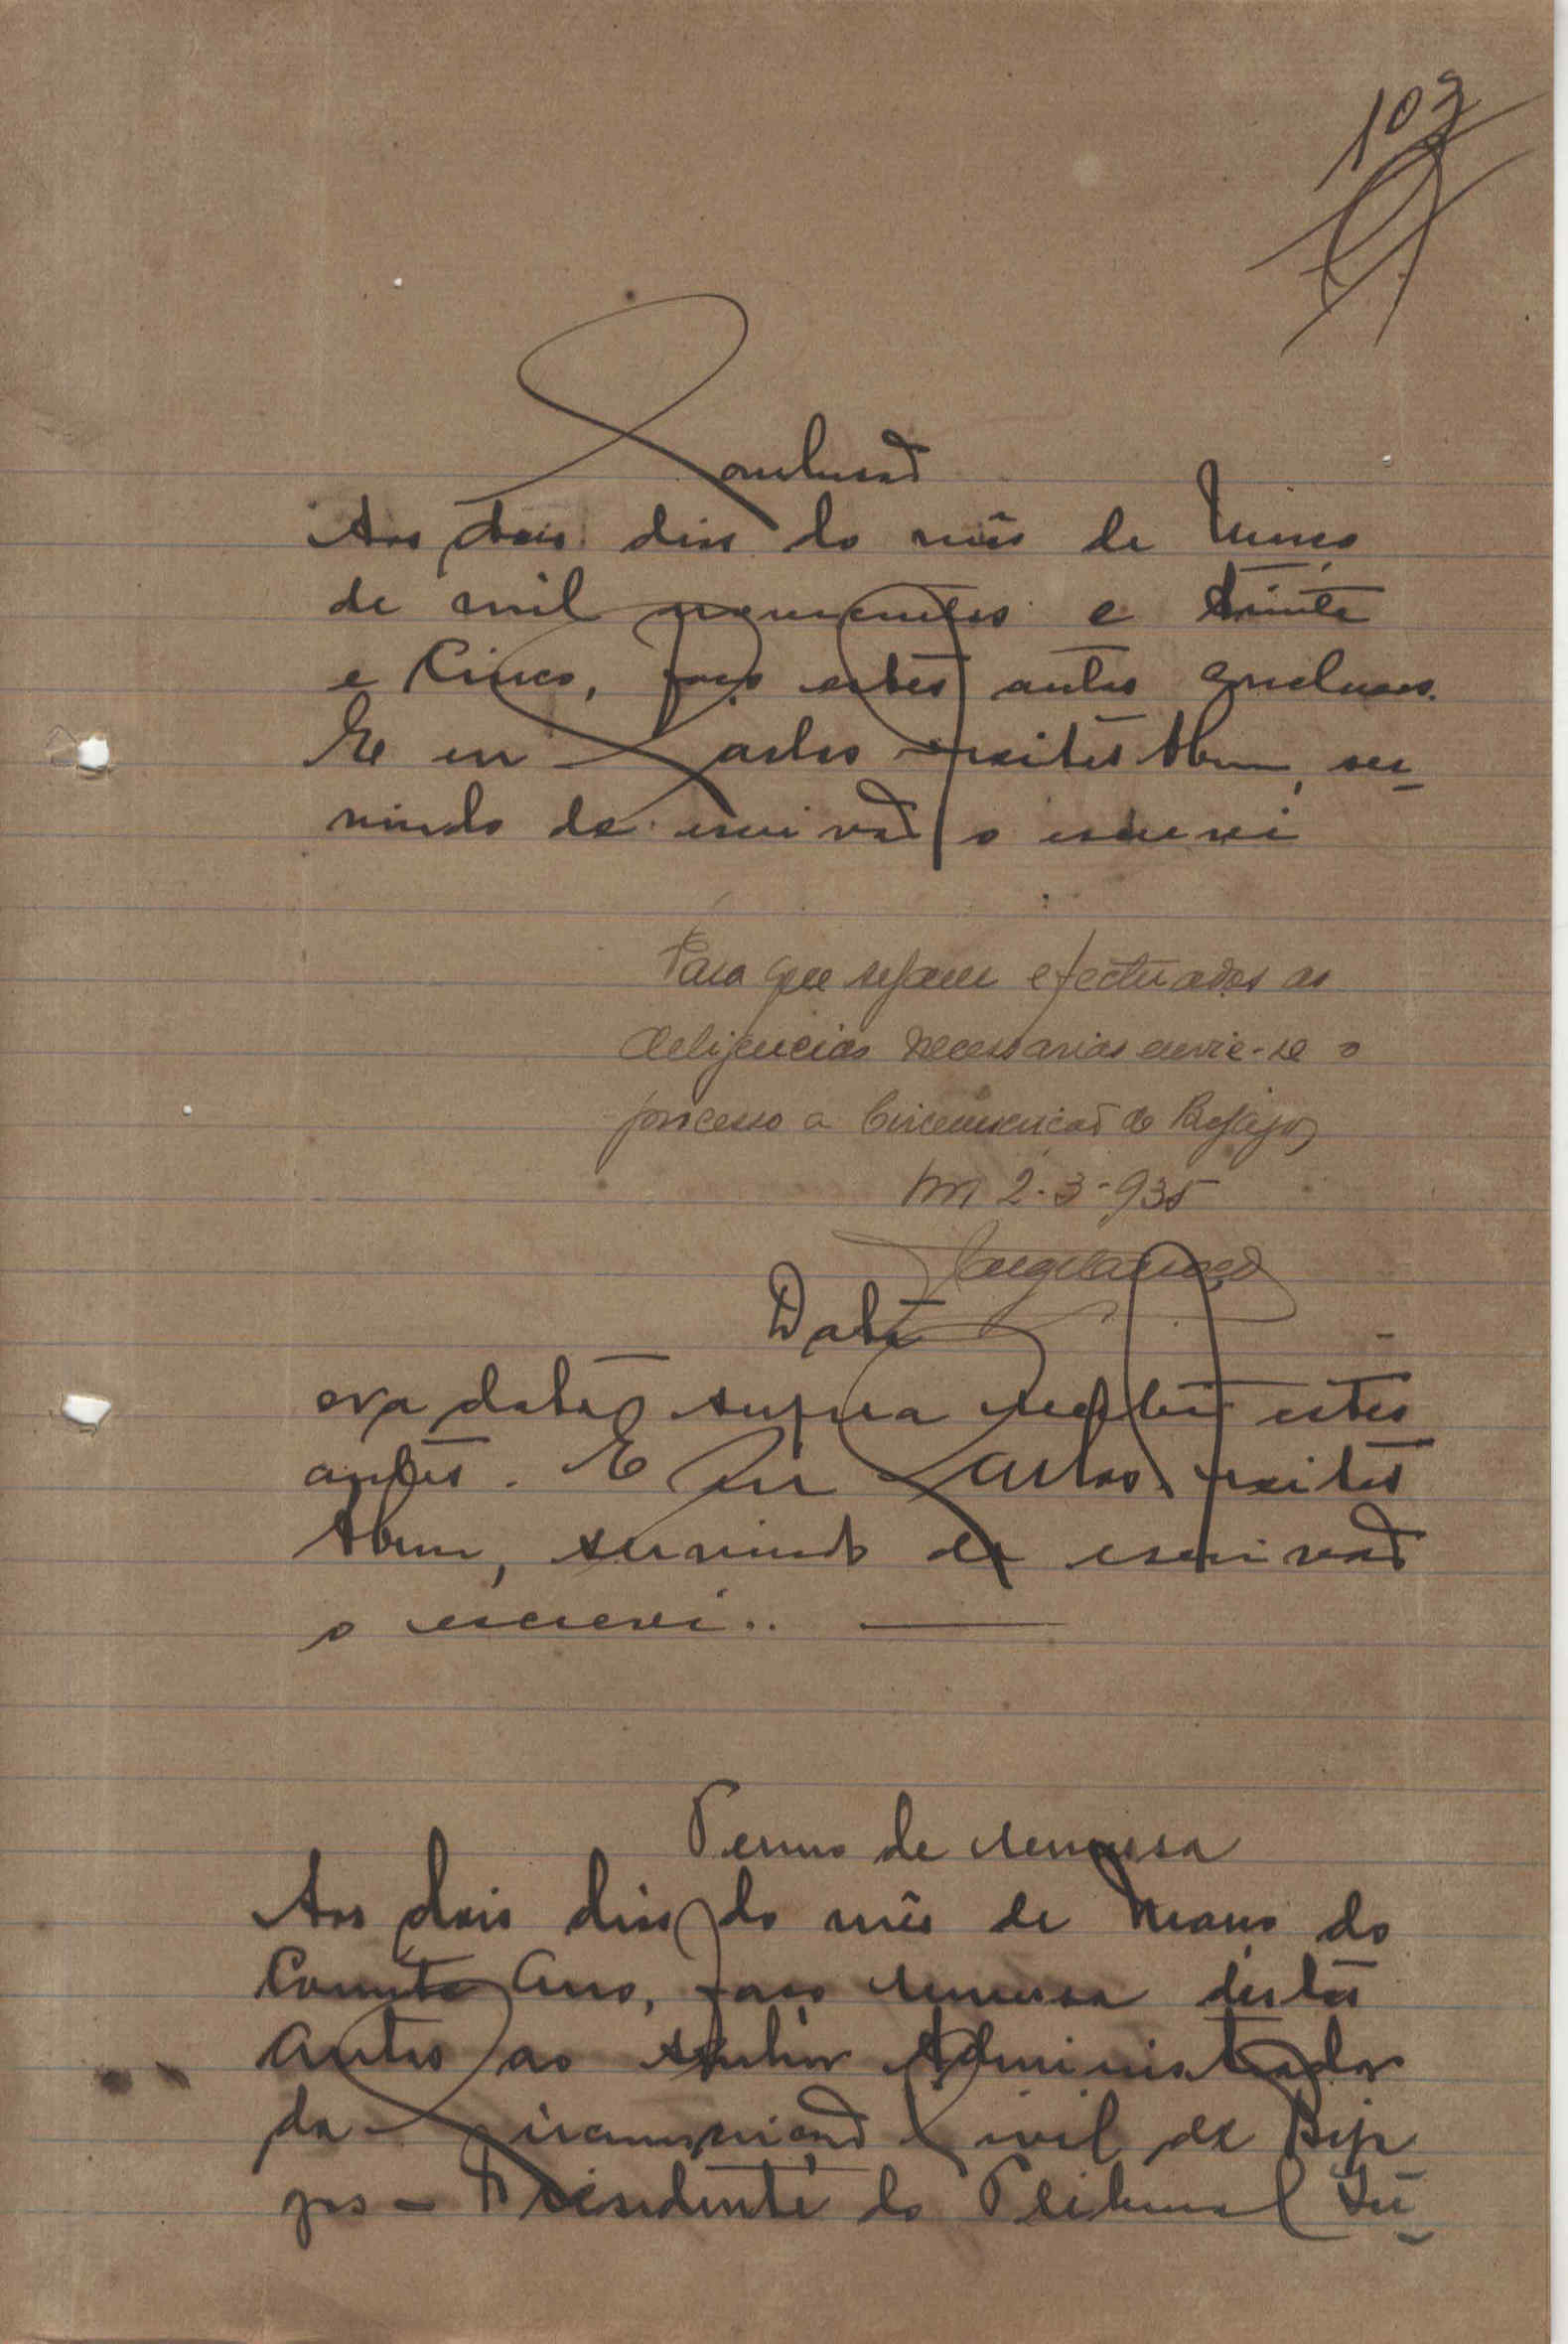 103
Conclusão
Aos dois dias do mês de Março
de mil novecentos e trinta
e Cinco, faço estes autos conclusos.
E eu Carlos Leites Abreu, ser-
vindo de escrivão o escrevi
Para que sejam efectuadas as
deligencias necessarias envie-se o
processo a Circunscrição de Bijagoz
2-3-935
Data
Na data supra recebi estes
autos. E Eu Carlos Leites
Abreu, servindo de escrivão
o escrevi..
Termo de remessa
Aos dois dias do mês de Março do
Corrente Ano, faço remessa destes
Autos ao senhor Administrador
da Circunscrição Civil de Bija
gos - Presidente do Tribunal